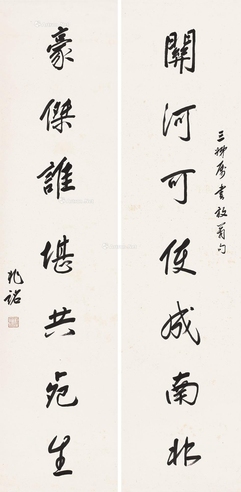 關河可使成南北
三 屬書放翁句
豪傑誰堪共死生
兆銘